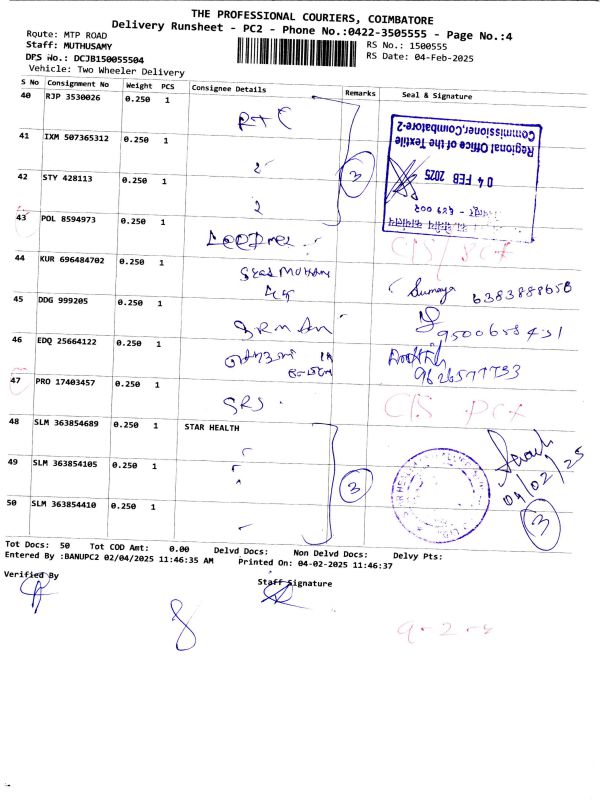 THE PROFESSIONAL COURIERS, COIMBATORE
Delivery Runsheet - PC2 - Phone No.:0422-3505555 - Page No.:4
Route: MTP ROAD
Staff: MUTHUSAMY
DPS No.: DCJB150055504
Vehicle: Two Wheeler Delivery
RS No.: 1500555
RS Date: 04-Feb-2025
S No Consignment No Weight PCS Consignee Details Remarks Seal & Signature
40 RJP 3530026 0.250 1
41 IXM 507365312 0.250 1
42 STY 428113 0.250 1
3
Regional Office of the Textile
Commissioner,Coimbatore-2
04 FEB 2025
43 POL 8594973 0.250 1
44 KUR 696484702 0.250 1 Sumaya 6383888658
45 DDG 999205 0.250 1 9500658431
46 EDQ 25664122 0.250 1 9626577793
47 PRO 17403457 0.250 1 SRS
48 SLM 363854689 0.250 1 STAR HEALTH
49 SLM 363854105 0.250 1
50 SLM 363854410 0.250 1
3
04/02/25
3
Tot Docs: 50 Tot COD Amt: 0.00 Delvd Docs: Non Delvd Docs: Delvy Pts:
Entered By :BANUPC2 02/04/2025 11:46:35 AM Printed On: 04-02-2025 11:46:37
Verified By
Staff Signature